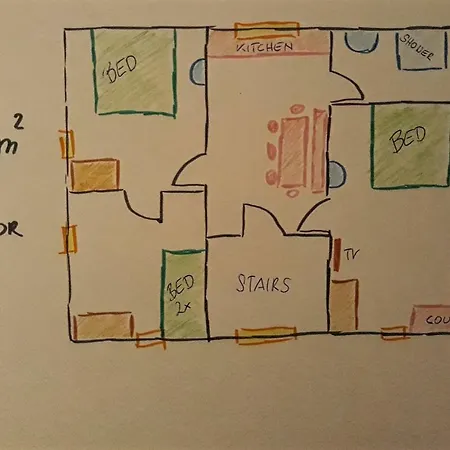 m²
OR
KITCHEN
SHOWER
BED
BED
TV
BED
2x
STAIRS
COU